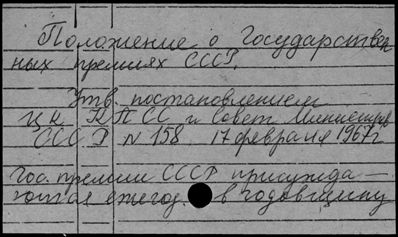 Положение о Государствен
ных премиях СССР.
Утв. постановлением
ЦК КПСС и Совет Министров
СССР N 158 17 февраля 1967г
Гос. премии СССР присужда-
ются ежегод. в годовщину